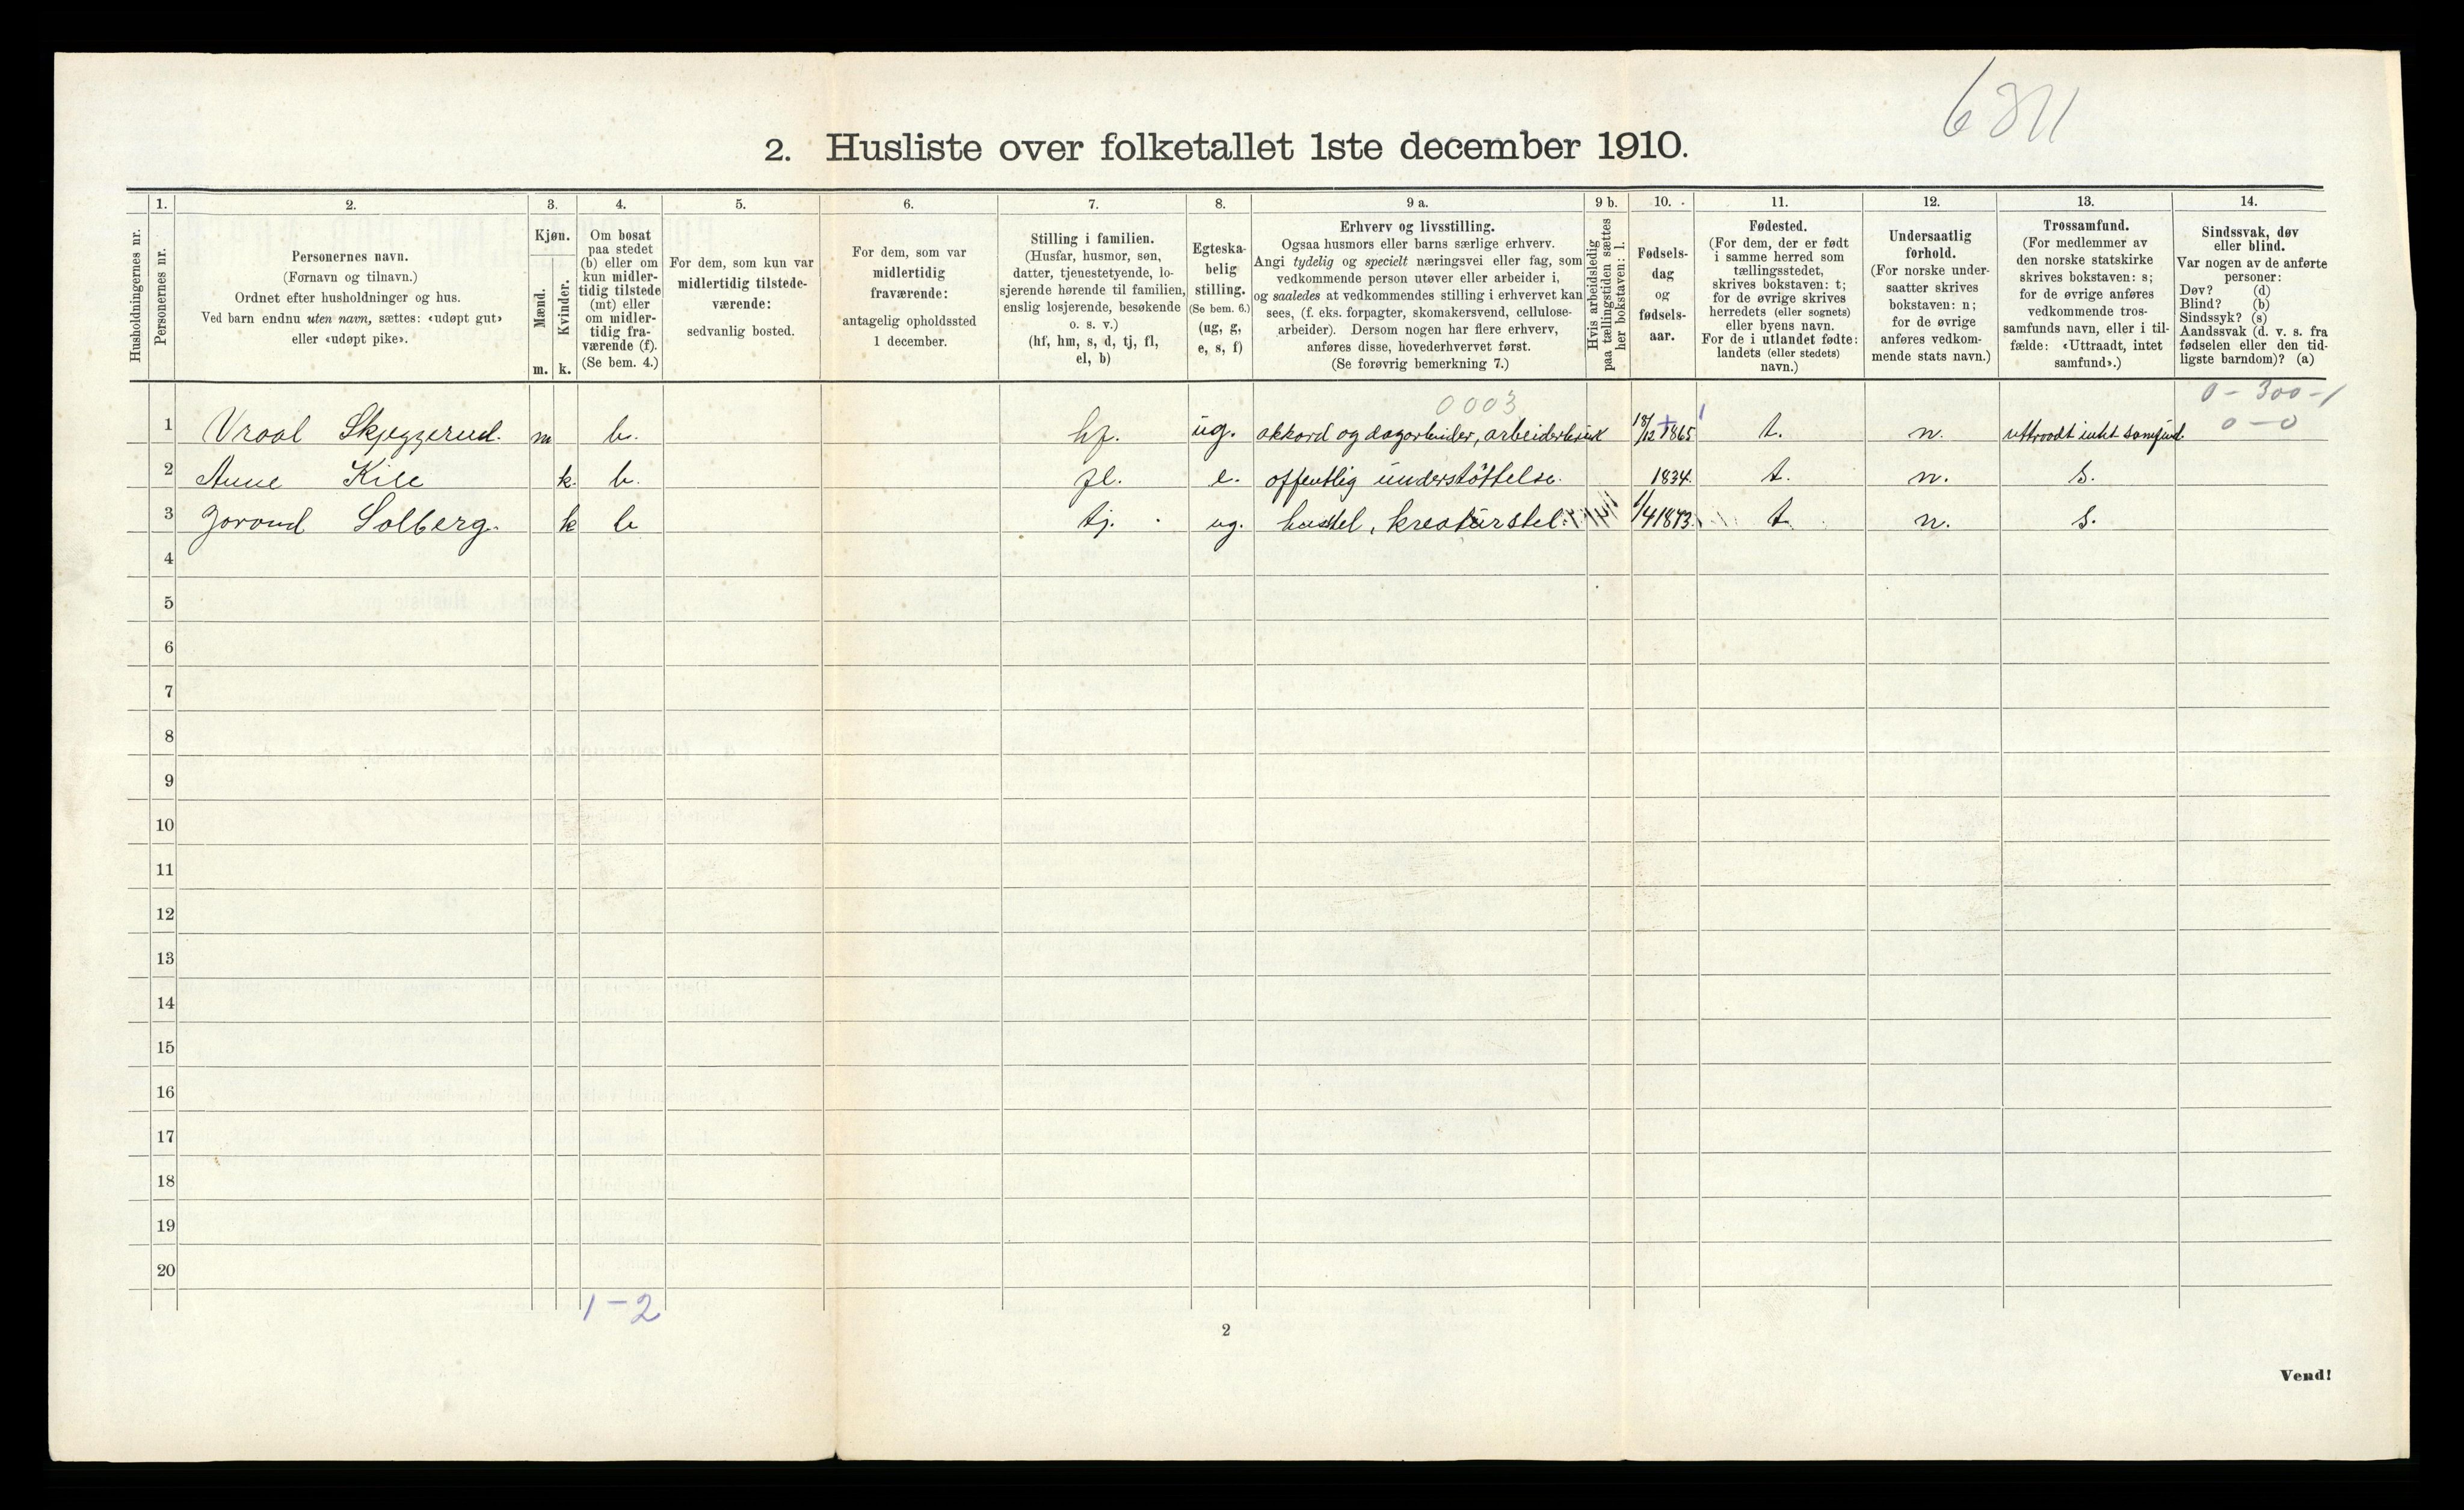 6811
2. Husliste over folketallet 1ste december 1910.
Husholdningernes nr.
1.
Personernes nr.
2.
Personernes navn.
(Fornavn og tilnavn.)
Ordnet efter husholdninger og hus.
Ved barn endnu uten navn, sættes: «udøpt gut»
eller «udøpt pike».
3.
Kjøn.
Mænd.
Kvinder.
m. k.
4.
Om bosat
paa stedet
(b) eller om
kun midler-
tidig tilstede
(mt) eller
om midler-
tidig fra-
værende (f).
(Se bem. 4.)
5.
For dem, som kun var
midlertidig tilstede-
værende:
sedvanlig bosted.
6.
For dem, som var
midlertidig
fraværende:
antagelig opholdssted
1 december.
7.
Stilling i familien.
(Husfar, husmor, søn,
datter, tjenestetyende, lo-
sjerende hørende til familien,
enslig losjerende, besøkende
o. s. v.)
(hf, hm, s, d, tj, fl,
el, b)
8.
Egteska-
belig
stilling.
(Se bem. 6.)
(ug, g,
e, s, f)
9 a.
Erhverv og livsstilling.
Ogsaa husmors eller barns særlige erhverv.
Angi tydelig og specielt næringsvei eller fag, som
vedkommende person utøver eller arbeider i,
og saaledes at vedkommendes stilling i erhvervet kan
sees, (f. eks. forpagter, skomakersvend, cellulose-
arbeider). Dersom nogen har flere erhverv,
anføres disse, hovederhvervet først.
(Se forøvrig bemerkning 7.)
9 b.
Hvis arbeidsledig
paa tællingstiden sættes
her bokstaven: l.
10.
Fødsels-
dag
og
fødsels-
aar.
11.
Fødested.
(For dem, der er født
i samme herred som
tællingsstedet,
skrives bokstaven: t;
for de øvrige skrives
herredets (eller sognets)
eller byens navn.
For de i utlandet fødte:
landets (eller stedets)
navn.)
12.
Undersaatlig
forhold.
(For norske under-
saatter skrives
bokstaven: n;
for de øvrige
anføres vedkom-
mende stats navn.)
13.
Trossamfund.
(For medlemmer av
den norske statskirke
skrives bokstaven: s;
for de øvrige anføres
vedkommende tros-
samfunds navn, eller i til-
fælde: «Uttraadt, intet
samfund».)
14.
Sindssvak, døv
eller blind.
Var nogen av de anførte
personer:
Døv? (d)
Blind? (b)
Sindssyk? (s)
Aandssvak (d. v. s. fra
fødselen eller den tid-
ligste barndom)? (a)
0003
0 - 300 - 1
0 - 0
1 Vraal Skjeggerud. m b. hf. ug. akkord og dagarbeider, arbeiderbruk 18/12 1865 t. n. uttraadt intet samfund.
2 Anne Kile k. b. fl. e. offentlig understøttelse. 1834. t. n. s.
3 Jorond Solberg. k b tj. ug. husstel, kreaturstel. 1/4 1873. t n. s.
4
5
6
7
8
9
10
11
12
13
14
15
16
17
18
19
20
1 - 2
2
Vend!